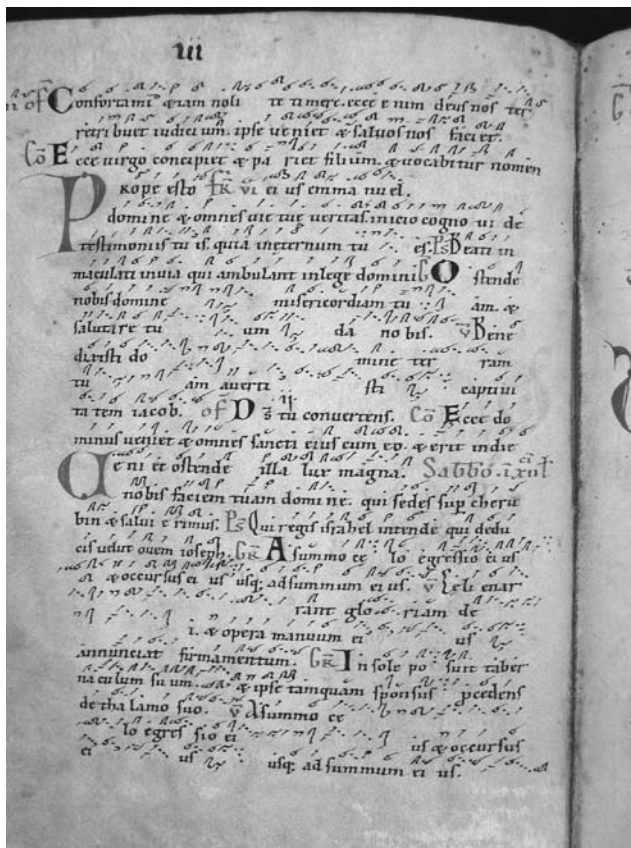 iii
of Confortamī & iam noli te timere. ecce enim deus noster
retribuet iudicium. ipse veniet & salvos nos faciet.
Cō Ecce virgo concipiet & pa riet filium. & vocabitur nomen
Prope esto fr̄ vi eius emmanuel.
domine & omnes vie tue veritas. inicio cognovi de
testimoniis tuis. quia ineternum tu es. Ps Beati in
maculati invia qui ambulant inlege domini Gr̄ Ostende
nobis domine misericordiam tu am. &
salutare tu um da nobis. v̄ Bene
dixisti do mine ter ram
tu am averti sti captivi
tatem iacob. of D̄s tu convertens. Cō Ecce do
minus veniet & omnes sancti eius cum eo. & erit indie
illa lux magna. Sabbō
Veni et ostende
nobis faciem tuam domine. qui sedes sup cheru
bin & salvi erimus. Ps Qui regis israhel intende qui dedu
cis velut ovem ioseph. Gr̄ A summo ce lo egressio eius
& occursus ei us usq; ad summum ei us. v̄ Celi enar
rant glo riam de
i. & opera manuum ei us
annunciat firmamentum. Gr̄ In sole po suit taber
naculum suum. & ipse tamquam sponsus pcedens
de thalamo suo. v̄ A summo ce
lo egres sio ei us & occursus
ei us usq; ad summum ei us.